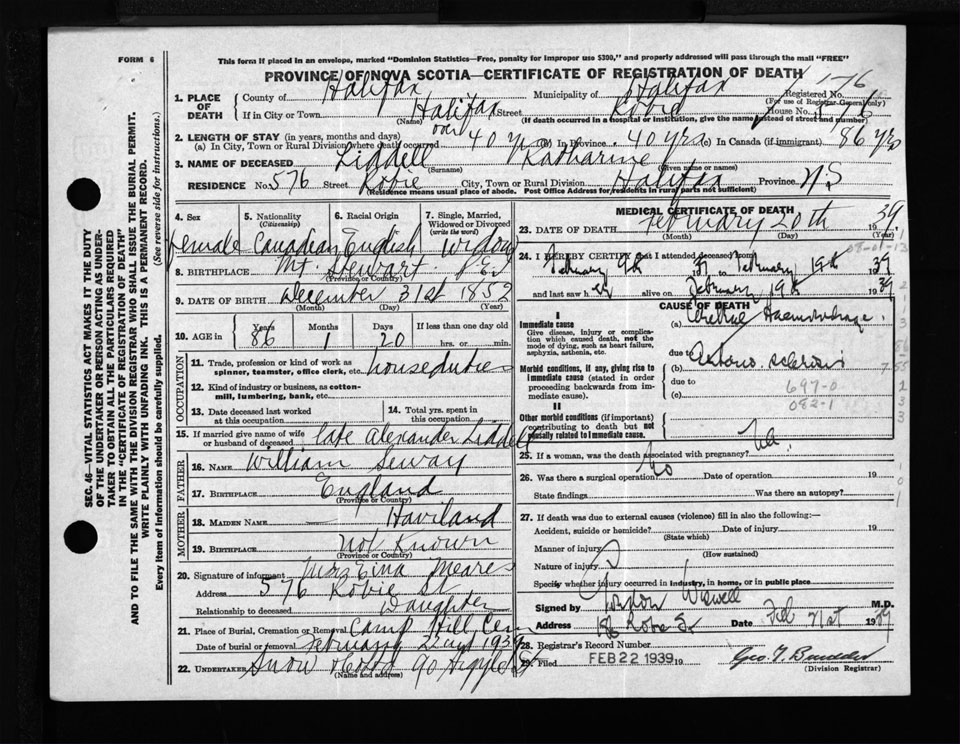 FORM 6
This form if placed in an envelope, marked "Dominion Statistics—Free, penalty for improper use $300," and properly addressed will pass through the mail "FREE"
PROVINCE OF NOVA SCOTIA—CERTIFICATE OF REGISTRATION OF DEATH
176
1. PLACE OF DEATH County of Halifax Municipality of Halifax Registered No.
(For use of Registrar General only)
If in City or Town Halifax Street Robie House No. 576
(Name) (If death occurred in a hospital or institution, give the name instead of street and number)
2. LENGTH OF STAY (in years, months and days)
(a) In City, Town or Rural Division where death occurred over 40 yrs (b) In Province 40 yrs (c) In Canada (if immigrant) 86 yrs
3. NAME OF DECEASED Liddell Katharine
(Surname) (Given name or names)
RESIDENCE No. 576 Street Robie City, Town or Rural Division Halifax Province N S
(Residence means usual place of abode. Post Office Address for residents in rural parts not sufficient)
4. Sex 5. Nationality (Citizenship) 6. Racial Origin 7. Single, Married, Widowed or Divorced (write the word)
female Canadian English Widow
8. BIRTHPLACE Mt. Stewart P.E.I
(Province or Country)
9. DATE OF BIRTH December 31st 1852
(Month) (Day) (Year)
10. AGE in Years Months Days If less than one day old
86 1 20 hrs. or min.
OCCUPATION
11. Trade, profession or kind of work as spinner, teamster, office clerk, etc. houseduties
12. Kind of industry or business, as cotton-mill, lumbering, bank, etc.
13. Date deceased last worked at this occupation 14. Total yrs. spent in this occupation
15. If married give name of wife or husband of deceased late Alexander Liddell
FATHER
16. NAME William
17. BIRTHPLACE England
(Province or Country)
MOTHER
18. MAIDEN NAME — Haviland
19. BIRTHPLACE Not Known
(Province or Country)
20. Signature of informant Mrs Meares
Address 576 Robie St
Relationship to deceased Daughter
21. Place of Burial, Cremation or Removal Camp Hill Cem
Date of burial or removal February 22nd 1939
22. UNDERTAKER Snow 90 Argyle St
(Name and address)
MEDICAL CERTIFICATE OF DEATH
23. DATE OF DEATH February 20th 1939
(Month) (Day) (Year)
24. I HEREBY CERTIFY that I attended deceased from
February 9th 1939 to February 19th 1939
and last saw her alive on February 19th 1939
CAUSE OF DEATH
I
Immediate cause (a) Cerebral Haemorrhage.
Give disease, injury or complication which caused death, not the mode of dying, such as heart failure, asphyxia, asthenia, etc.
due to
Morbid conditions, if any, giving rise to immediate cause (stated in order proceeding backwards from immediate cause). (b) Arterio sclerosis
due to
(c)
697-0
082-1
II
Other morbid conditions (if important) contributing to death but not causally related to immediate cause.
25. If a woman, was the death associated with pregnancy? No
26. Was there a surgical operation? No Date of operation 19
State findings Was there an autopsy?
27. If death was due to external causes (violence) fill in also the following:—
Accident, suicide or homicide? Date of injury 19
(State which)
Manner of injury
(How sustained)
Nature of injury
Specify whether injury occurred in industry, in home, or in public place
Signed by Wiswell M.D.
Address Robie St Date Feb 21st 1939
28. Registrar's Record Number
29. Filed FEB 22 1939 19
(Division Registrar)
SEC. 46—VITAL STATISTICS ACT MAKES IT THE DUTY OF THE UNDERTAKER OR PERSON ACTING AS UNDERTAKER TO OBTAIN ALL THE PARTICULARS REQUIRED IN THE "CERTIFICATE OF REGISTRATION OF DEATH" AND TO FILE THE SAME WITH THE DIVISION REGISTRAR WHO SHALL ISSUE THE BURIAL PERMIT.
WRITE PLAINLY WITH UNFADING INK. THIS IS A PERMANENT RECORD.
Every item of information should be carefully supplied. (See reverse side for instructions.)